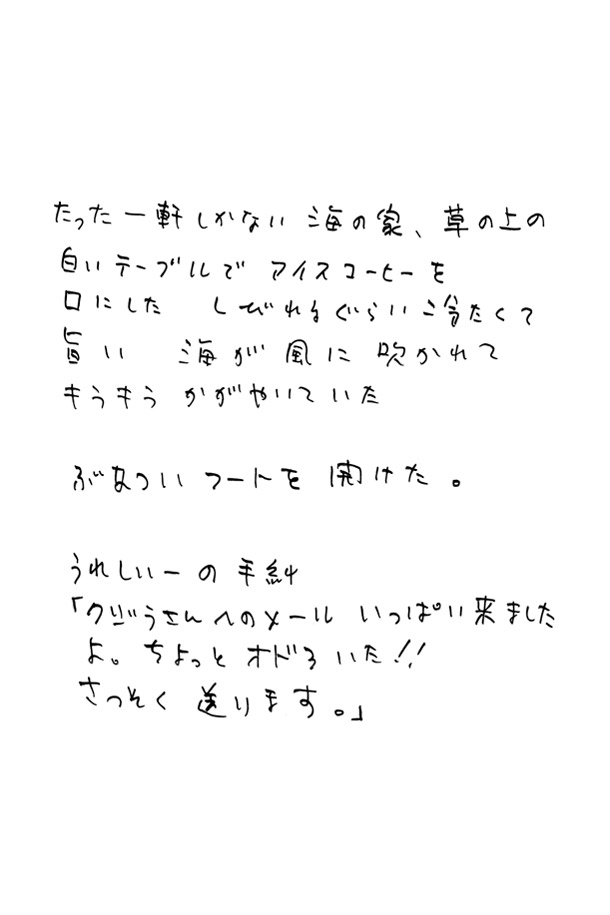 たった一軒しかない 海の家、草の上の
白いテーブルで アイスコーヒーを
口にした しびれるぐらい冷たくて
旨い 海が風に吹かれて
キラキラ かがやいていた

ぶあつい ノートを 開けた。

うれしいーの手紙
「クジラさんへのメール いっぱい来ました
よ。ちょっと オドろいた!!
さっそく 送ります。」